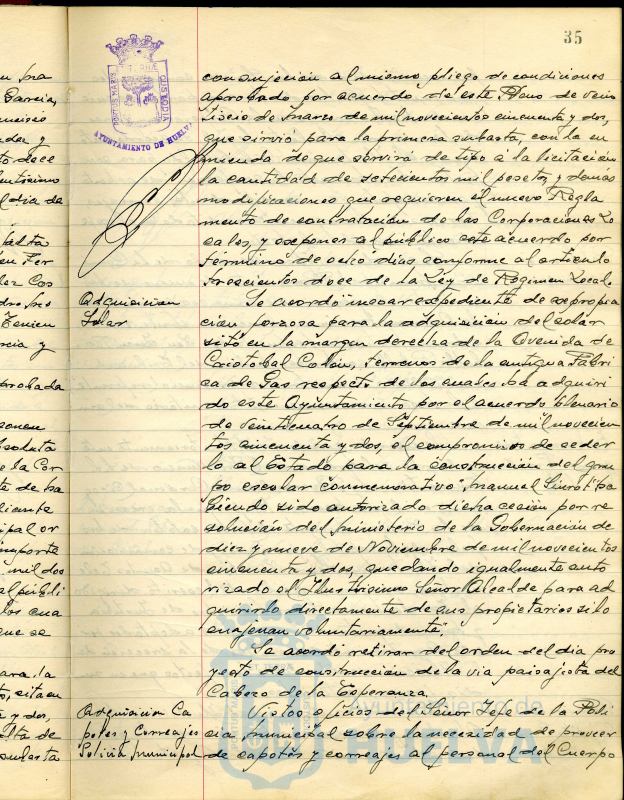 35
PORTUS MARIS
CUSTODIA
AYUNTAMIENTO DE HUELVA
con sujeción al mismo pliego de condiciones
aprobado por acuerdo de este Pleno de vein
tiseis de marzo de mil novecientos cincuenta y dos,
que sirvió para la primera subasta, con la en
mienda de que servirá de tipo a la licitación
la cantidad de setecientas mil pesetas, y demás
modificaciones que requieren el nuevo Regla
mento de contratación de las Corporaciones Lo
cales, y exponer al público este acuerdo por
término de ocho días conforme al artículo
trescientos doce de la Ley de Régimen Local.
Adquisición
Solar
Se acordó incoar expediente de expropia
ción forzosa para la adquisición del solar
sito en la margen derecha de la Avenida de
Cristobal Colón, terrenos de la antigua Fábri
ca de Gas respecto de los cuales ha adquiri
do este Ayuntamiento por el acuerdo plenario
de veinticuatro de Septiembre de mil novecien
tos cincuenta y dos, el compromiso de ceder
lo al Estado para la construcción del gru
po escolar conmemorativo "Manuel Siurot" ha
biendo sido autorizado dicha cesión por re
solución del Ministerio de la Gobernación de
diez y nueve de Noviembre de mil novecientos
cincuenta y dos, quedando igualmente auto
rizado el Ilustrísimo Señor Alcalde para ad
quirirlo directamente de sus propietarios si lo
enajenan voluntariamente.
Se acordó retirar del orden del día pro
yecto de construcción de la via paisajista del
Cabezo de la Esperanza.
Adquisición Ca
potes y Correajes
Policía Municipal
Vistos oficios del Señor Jefe de la Poli
cía Municipal sobre la necesidad de proveer
de capotes y correajes al personal del Cuerpo
Ayuntamiento de
HUELVA